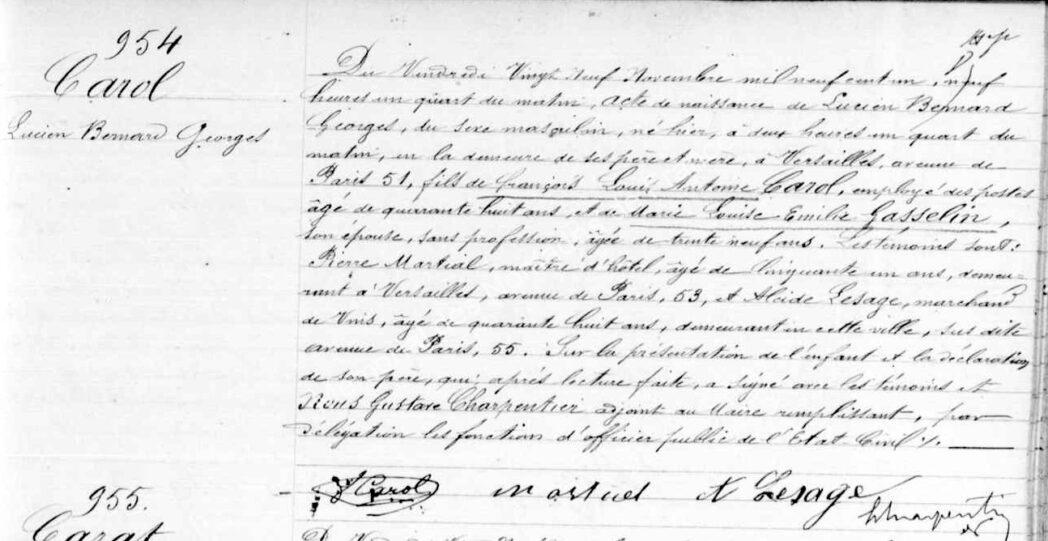 954
Carol
Lucien Bernard Georges
Du Vendredi Vingt Neuf Novembre mil neuf cent un, neuf
heures un quart du matin, acte de naissance de Lucien Bernard
Georges, du sexe masculin, né hier, à deux heures un quart du
matin, en la demeure de ses père et mère, à Versailles, avenue de
Paris 51, fils de François Louis Antoine Carol, employé des postes
âgé de quarante huit ans, et de Marie Louise Emilie Gasselin,
son épouse, sans profession, âgée de trente neuf ans. Les témoins sont :
Pierre Martial, maître d'hôtel, âgé de Cinquante un ans, demeu-
rant à Versailles, avenue de Paris, 53, et Alcide Lesage, marchand
de Vins, âgé de quarante huit ans, demeurant en cette ville, sus dite
avenue de Paris, 55. Sur la présentation de l'enfant et la déclaration
de son père, qui, après lecture faite, a signé avec les témoins et
Nous Gustave Charpentier adjoint au Maire remplissant, par
délégation les fonctions d'officier public de l'Etat Civil ./.
Carol Martial A Lesage
Charpentier
955.
Carat